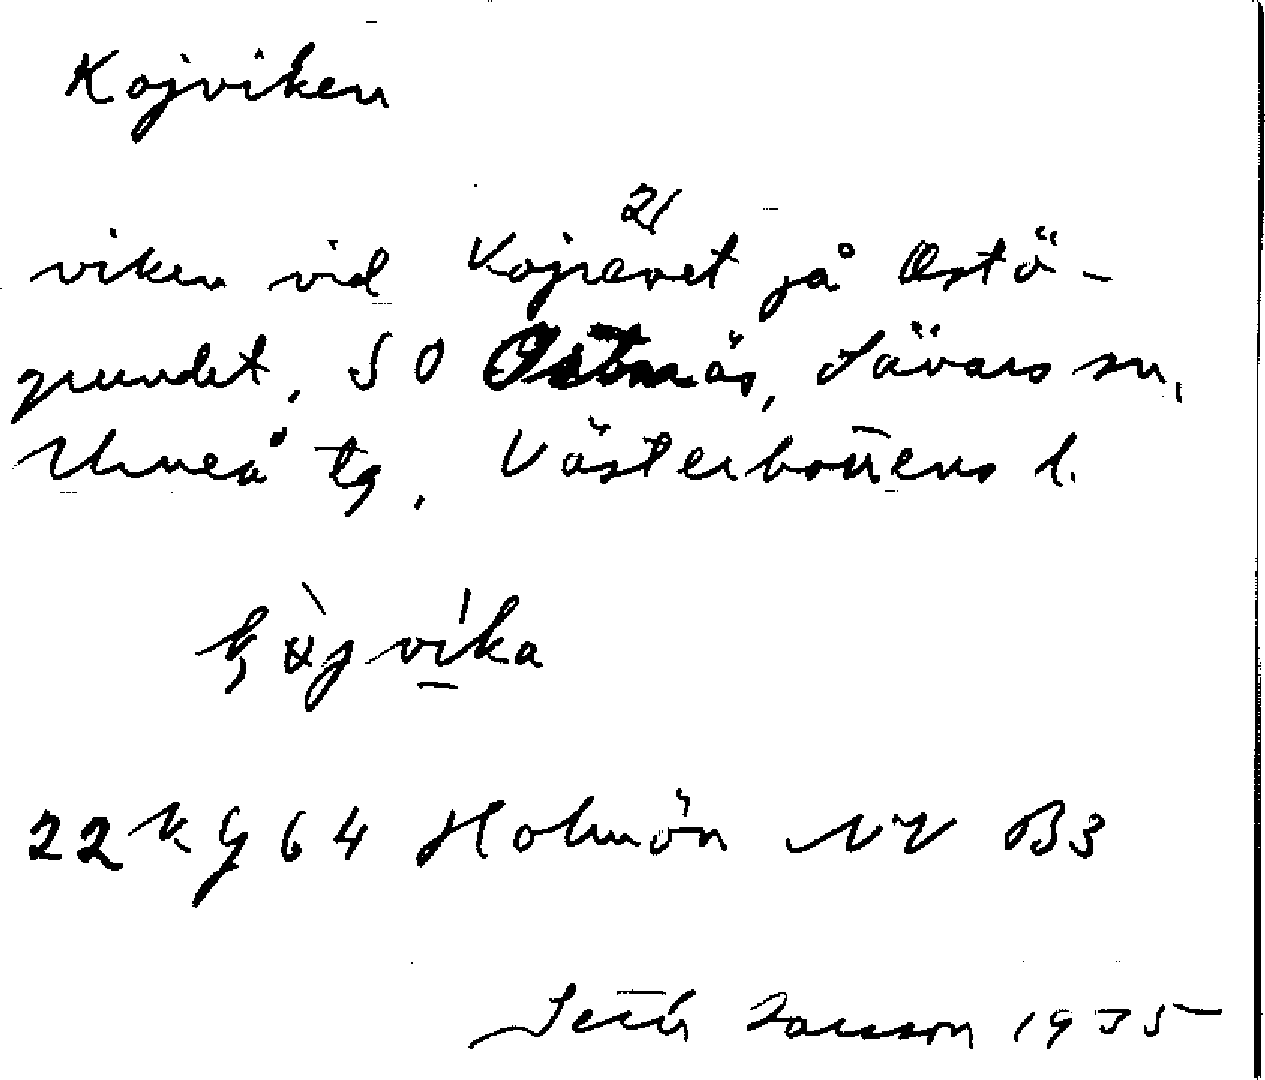 Kojviken
21
viken vid Kojrevet på Ostö-
grundet, SO Ostnäs, Sävars sn,
Umeå tg, Västerbottens l.
vika
22 K g 64 Holmön NV B3
Seth Jansson 1975